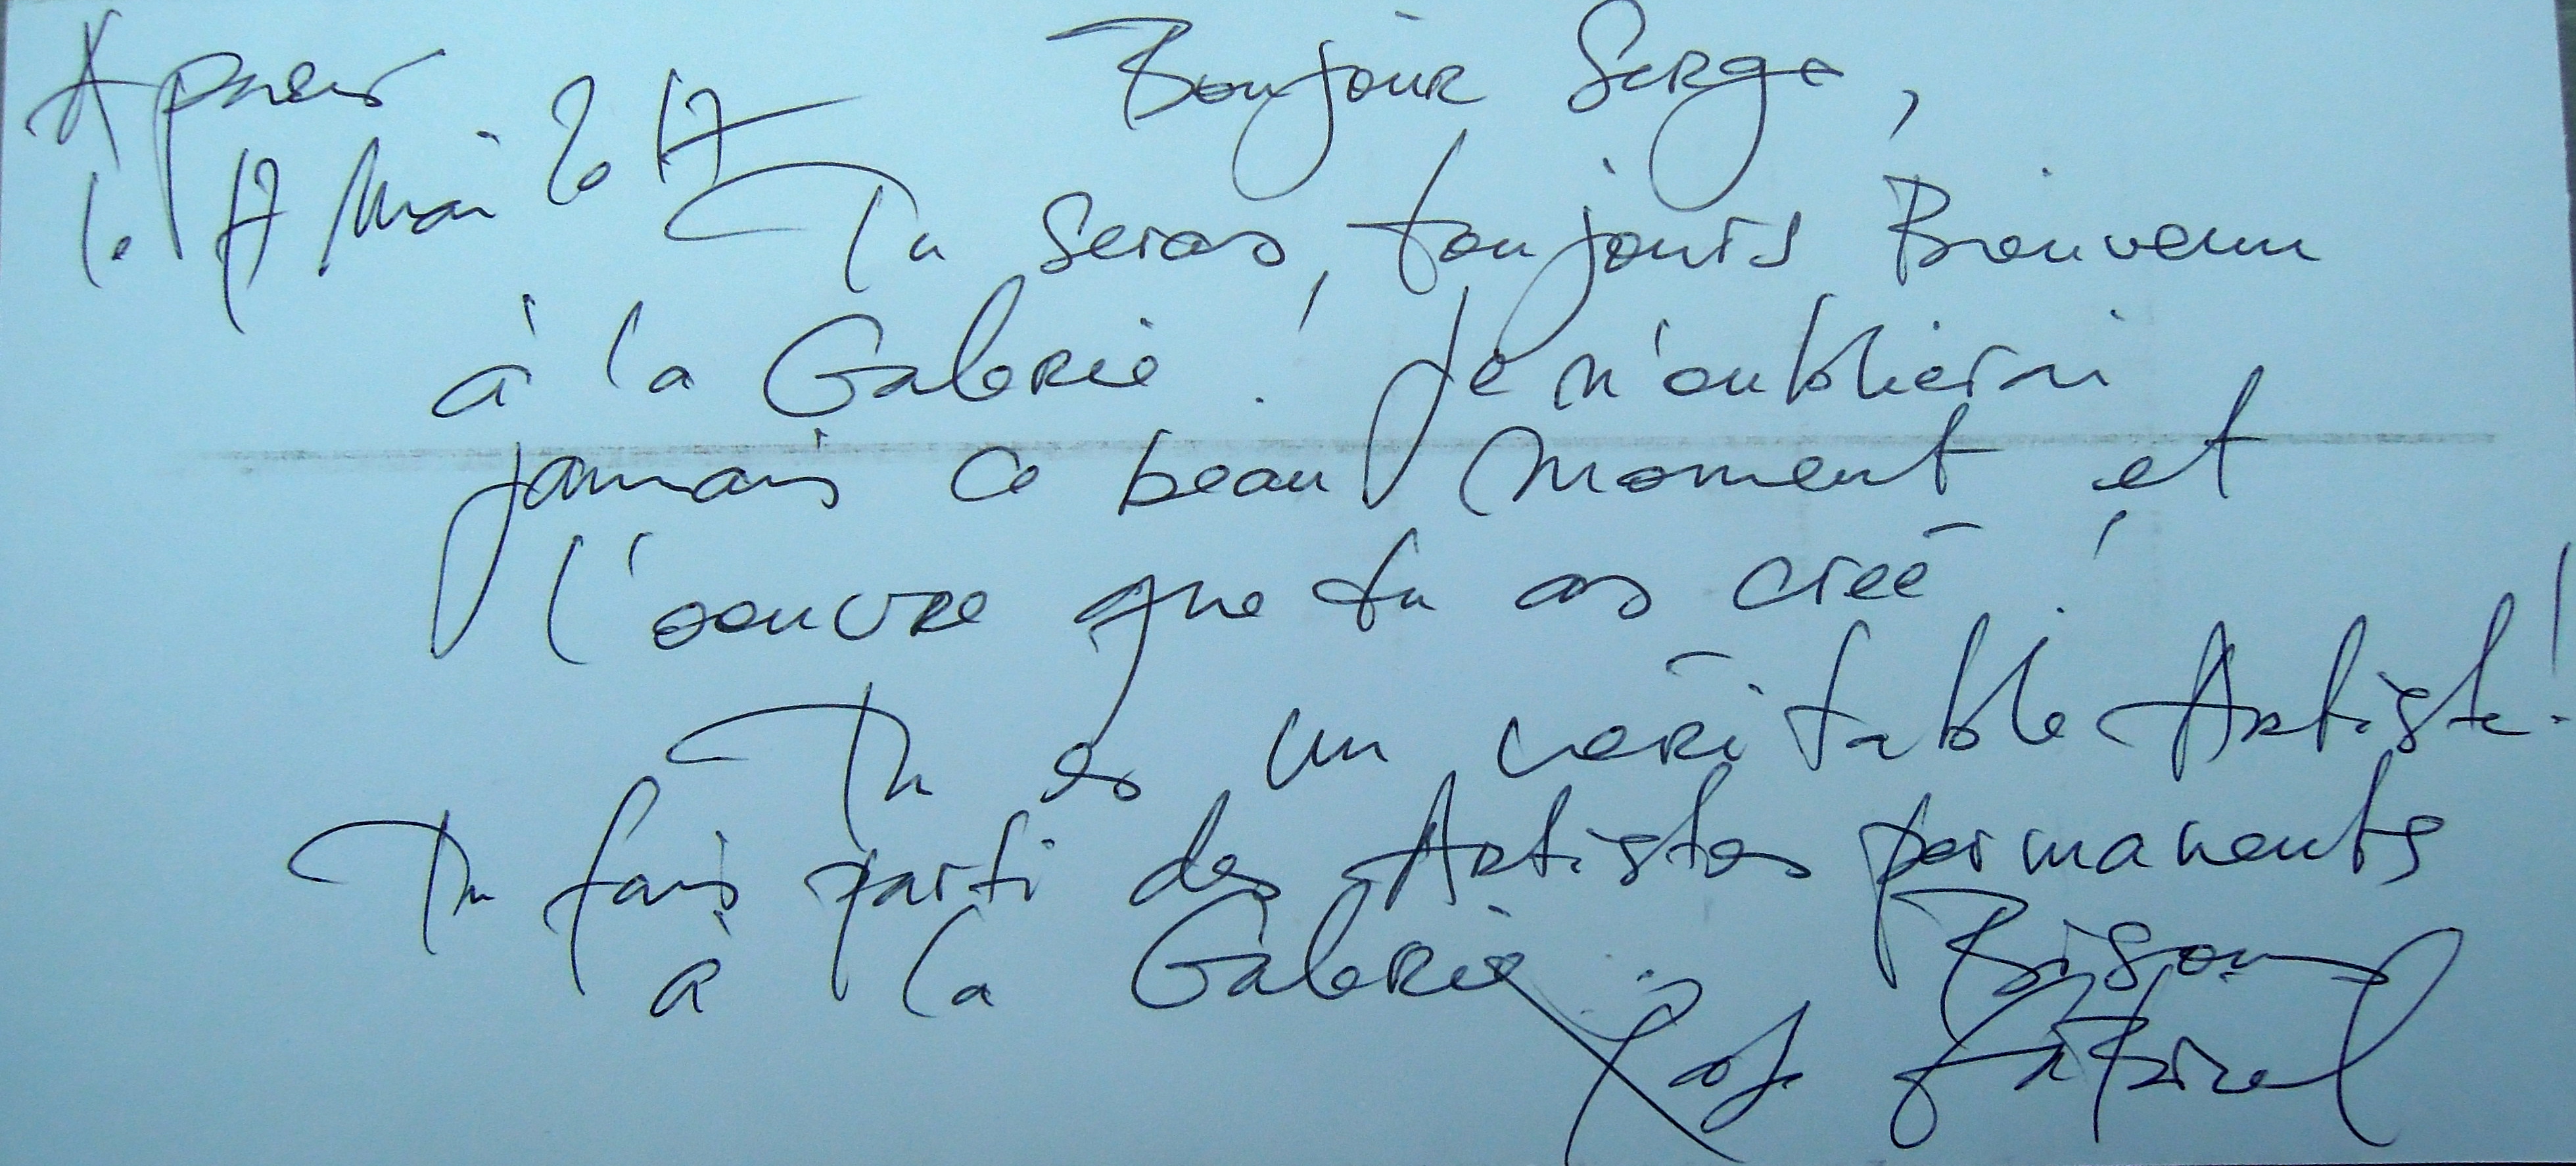 le 17 Mai 2017
Bonjour Serge,
Tu seras, toujours Bienvenu
à la Galerie ! Je n'oublierai
jamais ce beau moment et
l'oeuvre que tu as créé !
Tu es un véritable Artiste !
Tu fais parti des Artistes permanents
à la Galerie
Bisou